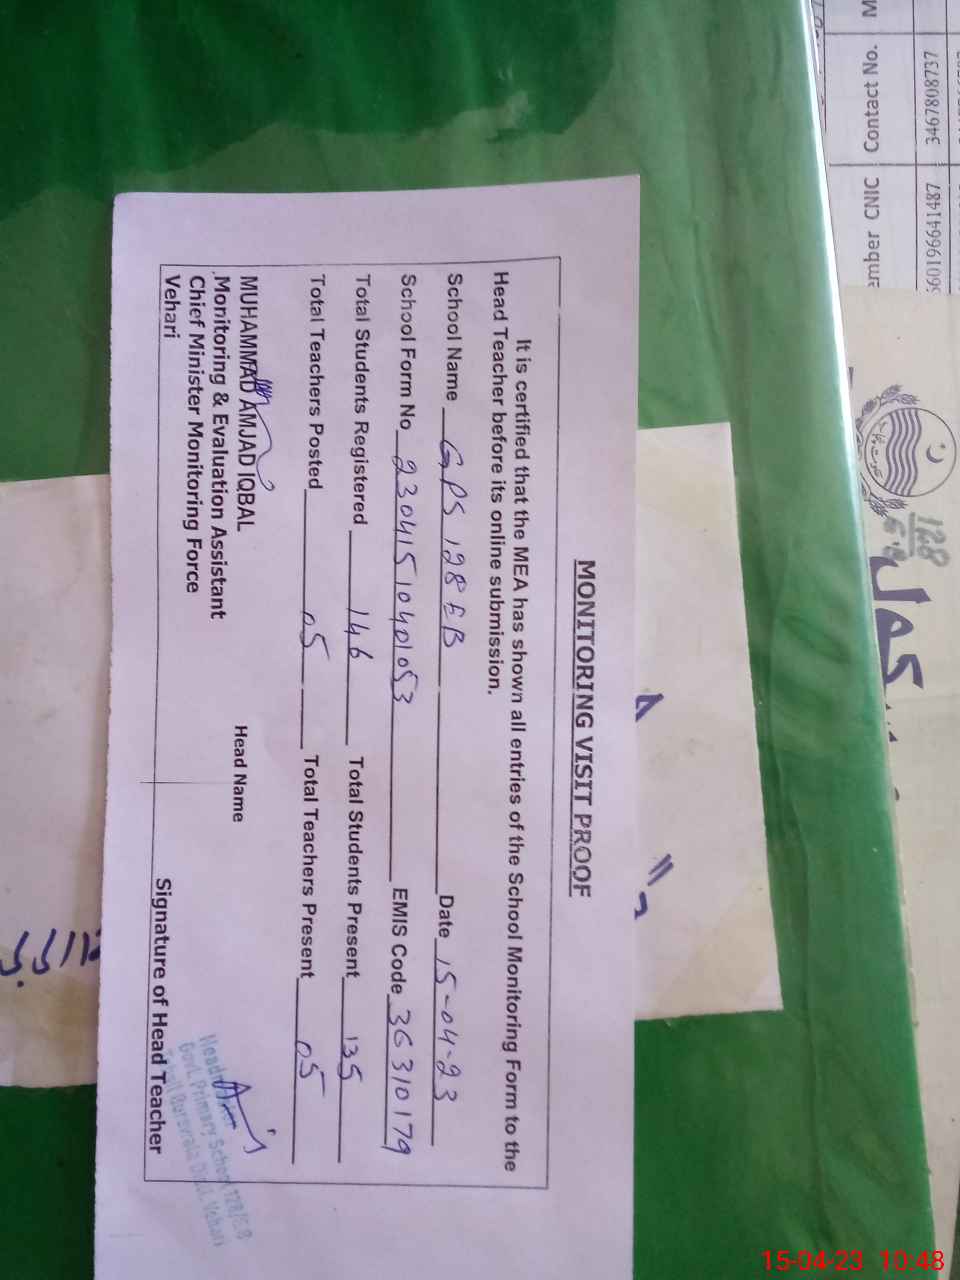 MONITORING VISIT PROOF
It is certified that the MEA has shown all entries of the School Monitoring Form to the
Head Teacher before its online submission.
School Name GPS 128 EB Date 15-04-23
School Form No 23041510401053 EMIS Code 36310179
Total Students Registered 146 Total Students Present 135
Total Teachers Posted 05 Total Teachers Present 05
MUHAMMAD AMJAD IQBAL
Monitoring & Evaluation Assistant
Chief Minister Monitoring Force
Vehari
Head Name
Govt. Primary School 128/E.B
Tehsil Burewala Distt. Vehari
Signature of Head Teacher
Contact No.
CNIC
3467808737
128
15-04-23 10:48